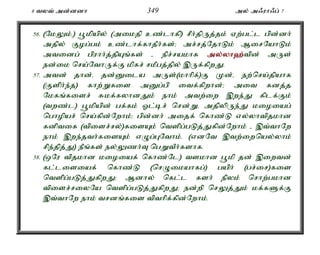 8 வலவ் அன்னனா 349 அல் அஃராஃப் 7
56. (மேலும்,) பூமியில் (அமைதி உண்டாகி) சீர்திருத்தம் ஏற்பட்ட பின்னர்
அதில் குழப்பம் உண்டாக்காதீர்கள்; அச்சத்தோடும் ஆசையோடும்
அவனைப் பிரார்த்தியுங்கள் - நிச்சயமாக அல்லாஹ்வின் அருள்
நன்மை செய்வோருக்கு மிகச் சமீபத்தில் இருக்கிறது.
57. அவன் தான், தன்னுடைய அருள்(மாரிக்)கு முன், நற்செய்தியாக
(குளிர்ந்த) காற்றுகளை அனுப்பி வைக்கிறான்; அவை கனத்த
மேகங்களைச் சுமக்கலானதும் நாம் அவற்றை இறந்து கிடக்கும்
(வறண்ட) பூமியின் பக்கம் ஓட்டிச் சென்று, அதிலிருந்து மழையைப்
பொழியச் செய்கின்றோம்; பின்னர் அதைக் கொண்டு எல்லாவிதமான
கனிவகை (விளைச்சல்)களையும் வெளிப்படுத்துகின்றோம் - இவ்வாறே
நாம் இறந்தவர்களையும் எழுப்புவோம். (எனவே இவற்றையெல்லாம்
சிந்தித்து) நீங்கள் நல்லுணர்வு பெறுவீர்களாக.
58. (ஒரே விதமான மழையைக் கொண்டே) வளமான பூமி தன் இறைவன்
கட்டளையைக் கொண்டு (செழுமையாகப்) பயிர் (பச்சை)களை
வெளிப்படுத்துகிறது; ஆனால் கெட்ட களர் நிலம் சொற்பமான
விளைச்சலையே வெளிப்படுத்துகிறது; நன்றி செலுத்தும் மக்களுக்கு
இவ்வாறே நாம் வசனங்களை விவரிக்கின்றோம்.